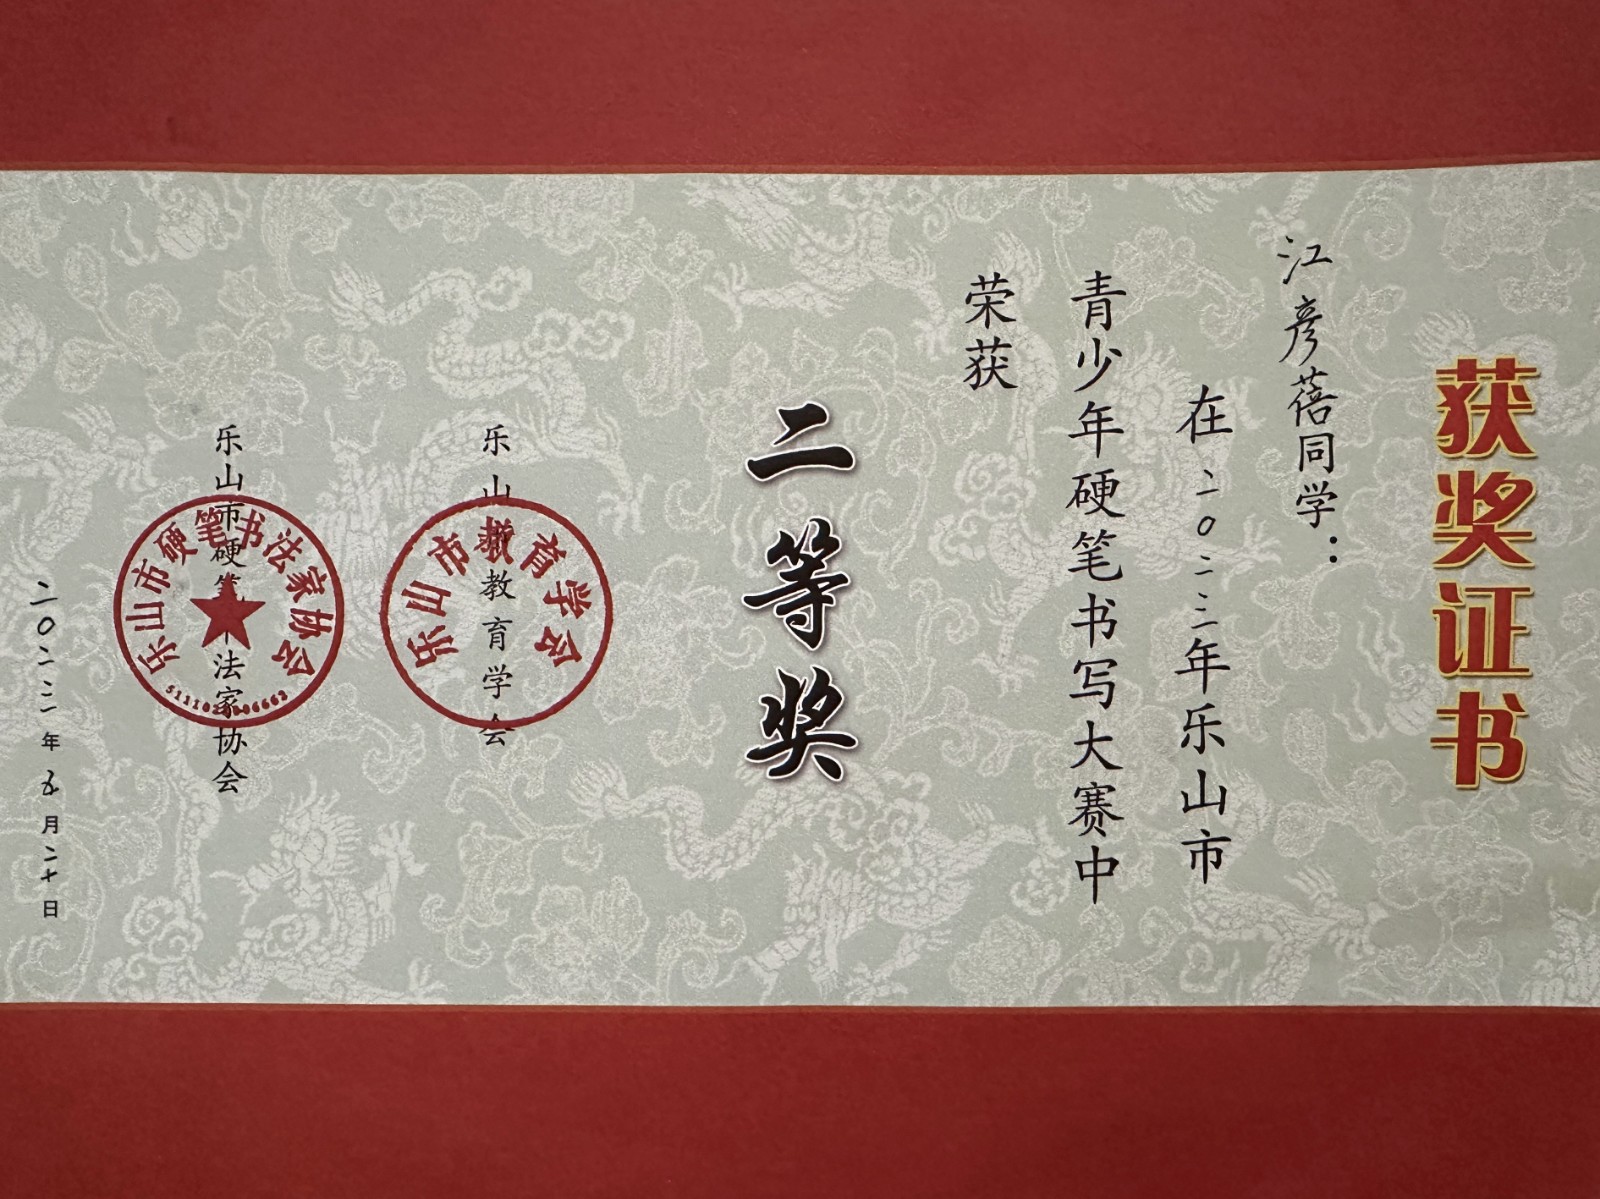 获奖证书
江彦蓓同学：
在二0二三年乐山市
青少年硬笔书写大赛中
荣获
二等奖
乐山市教育学会
乐山市教育学会
乐山市硬笔书法家协会
乐山市硬笔书法家协会
二0二三年五月二十日